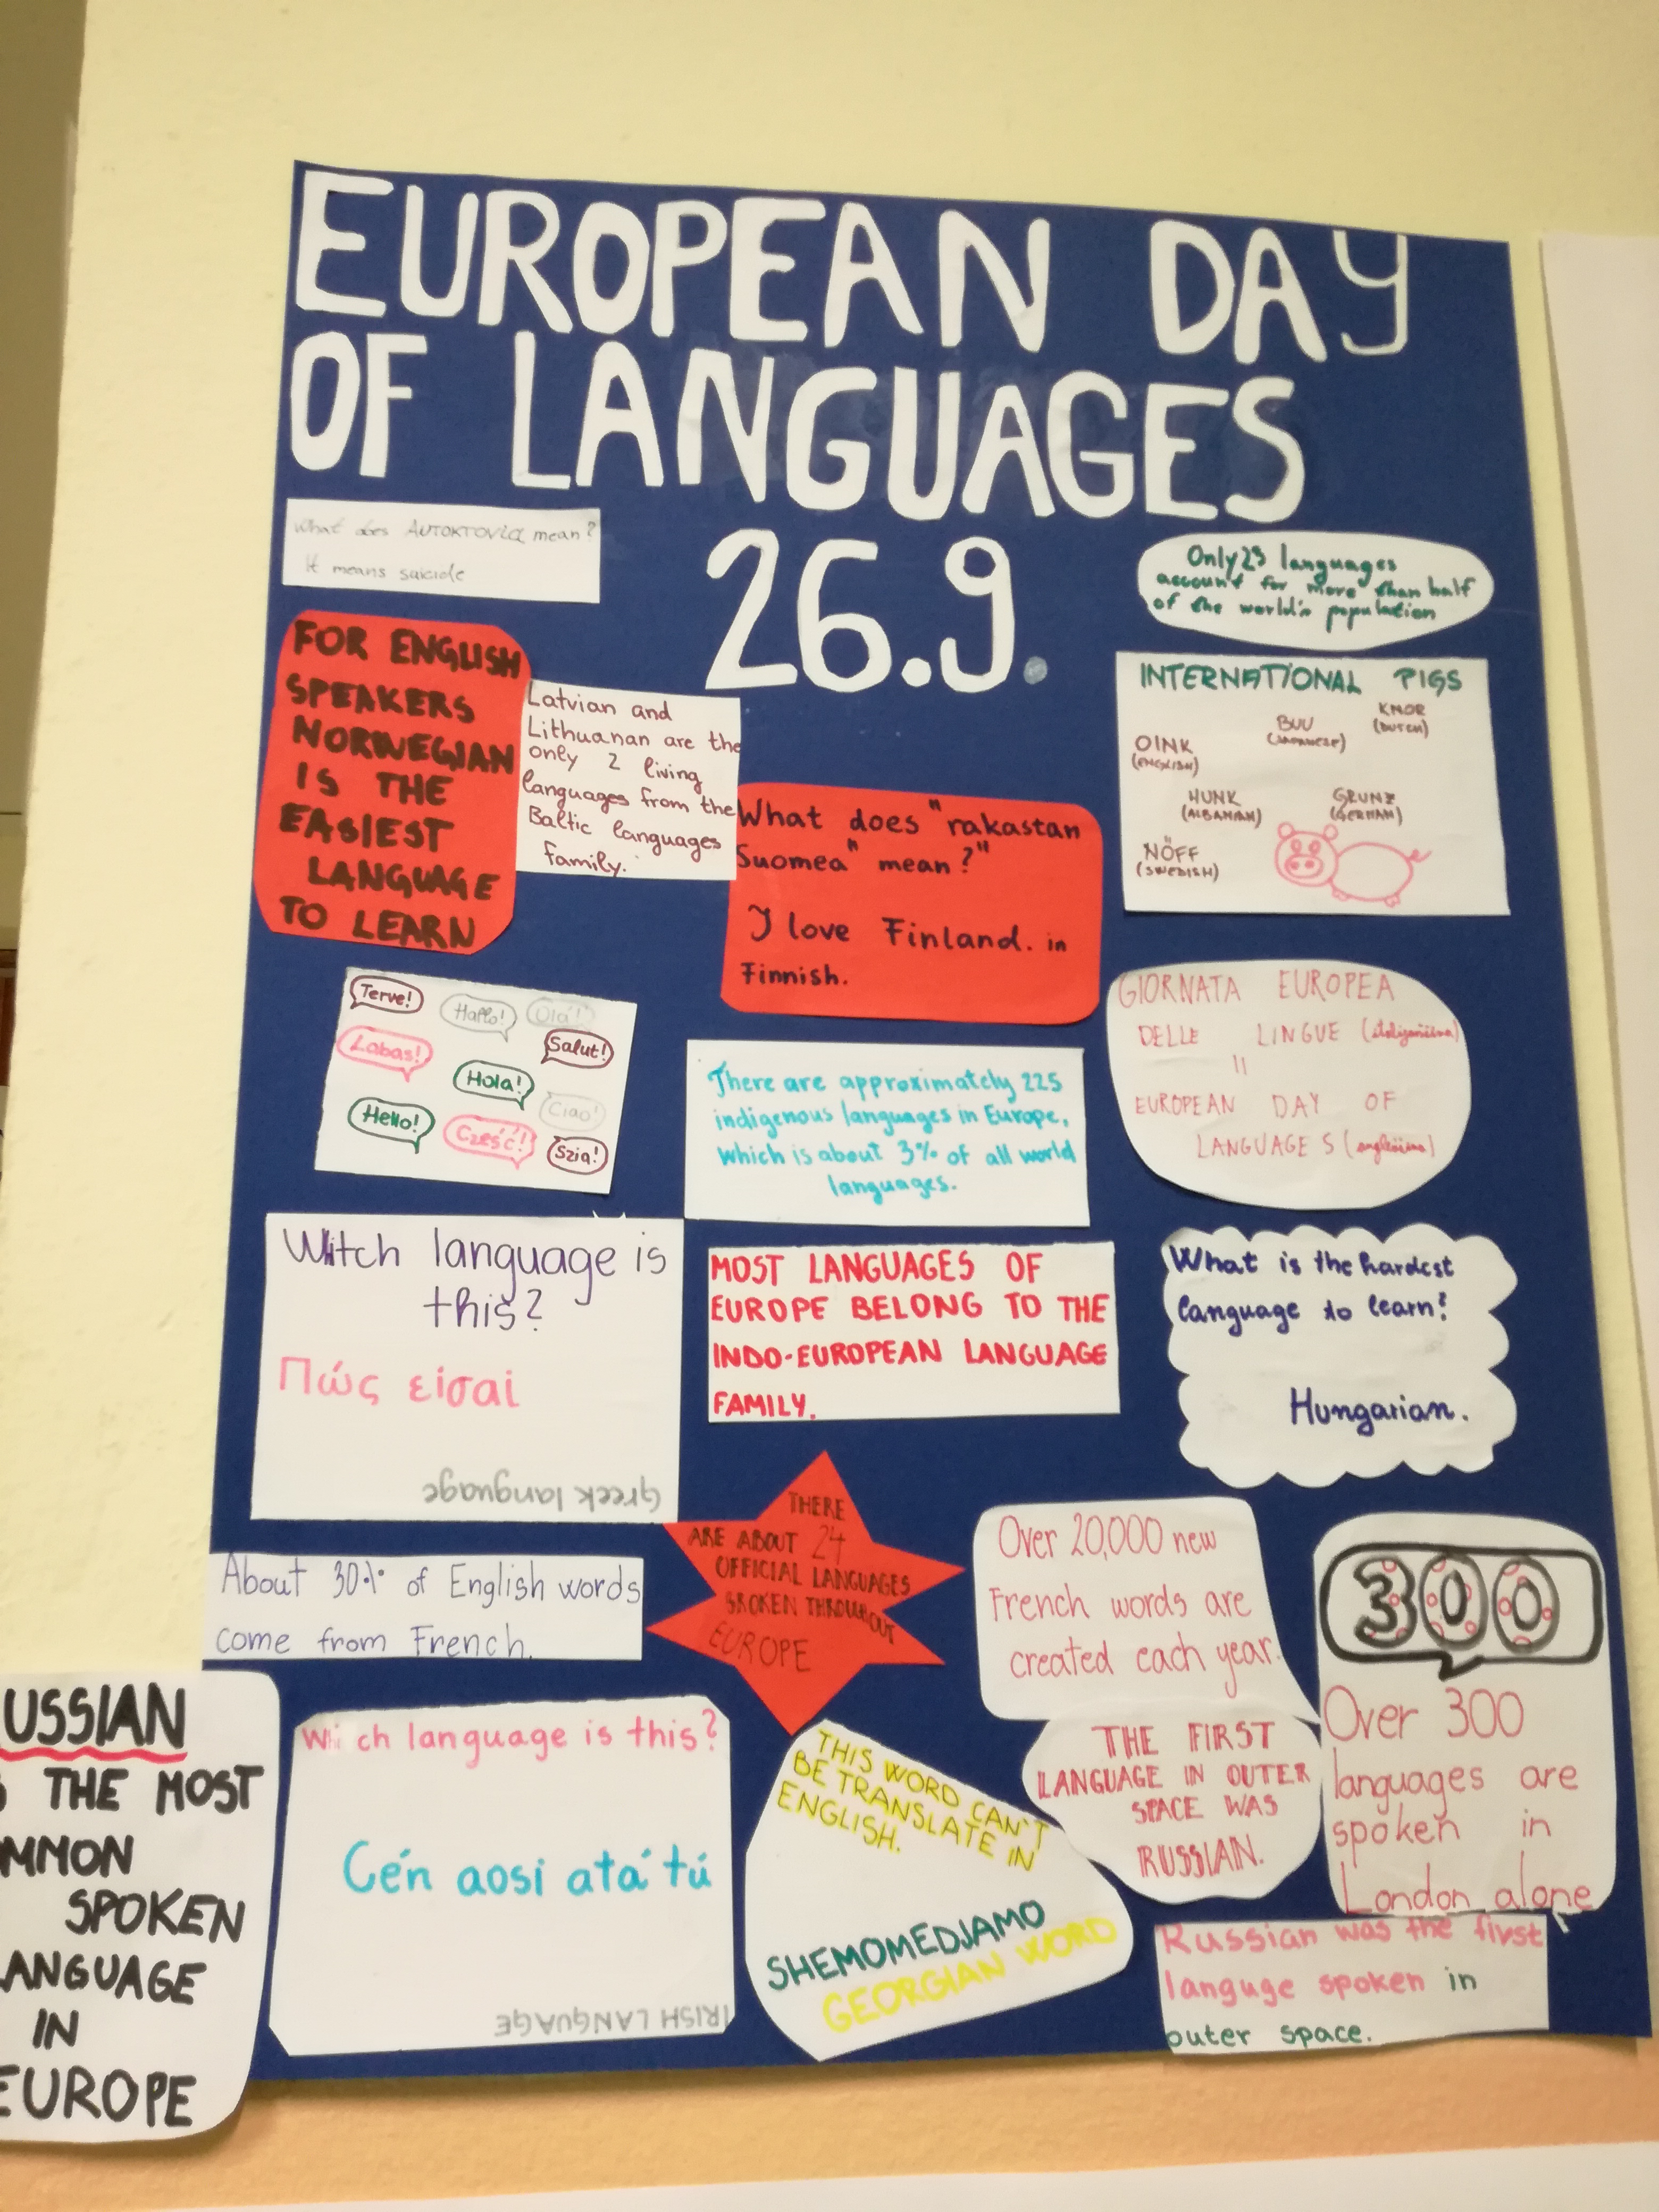 EUROPEAN DAY
OF LANGUAGES
26.9.
What does Αυτοκτονία mean?
It means suicide
Only 23 languages
account for more than half
of the world's population
FOR ENGLISH
SPEAKERS
NORWEGIAN
IS THE
EASIEST
LANGUAGE
TO LEARN
Latvian and
Lithuanan are the
only 2 living
languages from the
Baltic languages
family.
INTERNATIONAL PIGS
KNOR
(DUTCH)
BUU
(JAPANESE)
OINK
(ENGLISH)
HUNK
(ALBANIAN)
GRUNZ
(GERMAN)
NÖFF
(SWEDISH)
What does "rakastan
Suomea" mean?"
I love Finland. in
Finnish.
Terve!
Hallo!
Olá!
Labas!
Salut!
Hola!
Hello!
Ciao!
Cześć!
Szia!
There are approximately 225
indigenous languages in Europe,
which is about 3% of all world
languages.
GIORNATA EUROPEA
DELLE LINGUE (italijanščina)
=
EUROPEAN DAY OF
LANGUAGES (angleščina)
Witch language is
this?
Πώς είσαι
Greek language
MOST LANGUAGES OF
EUROPE BELONG TO THE
INDO-EUROPEAN LANGUAGE
FAMILY.
What is the hardest
language to learn?
Hungarian.
About 30% of English words
come from French.
THERE
ARE ABOUT 24
OFFICIAL LANGUAGES
SPOKEN THROUGHOUT
EUROPE
Over 20,000 new
French words are
created each year.
300
Over 300
languages are
spoken in
London alone
USSIAN
THE MOST
MMON
SPOKEN
ANGUAGE
IN
EUROPE
Which language is this?
Cén aosi atá tú
IRISH LANGUAGE
THIS WORD CAN'T
BE TRANSLATE IN
ENGLISH.
SHEMOMEDJAMO
GEORGIAN WORD
THE FIRST
LANGUAGE IN OUTER
SPACE WAS
RUSSIAN.
Russian was the first
languge spoken in
outer space.